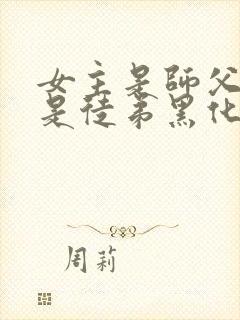 女主是師父
是徒弟黑化
周莉